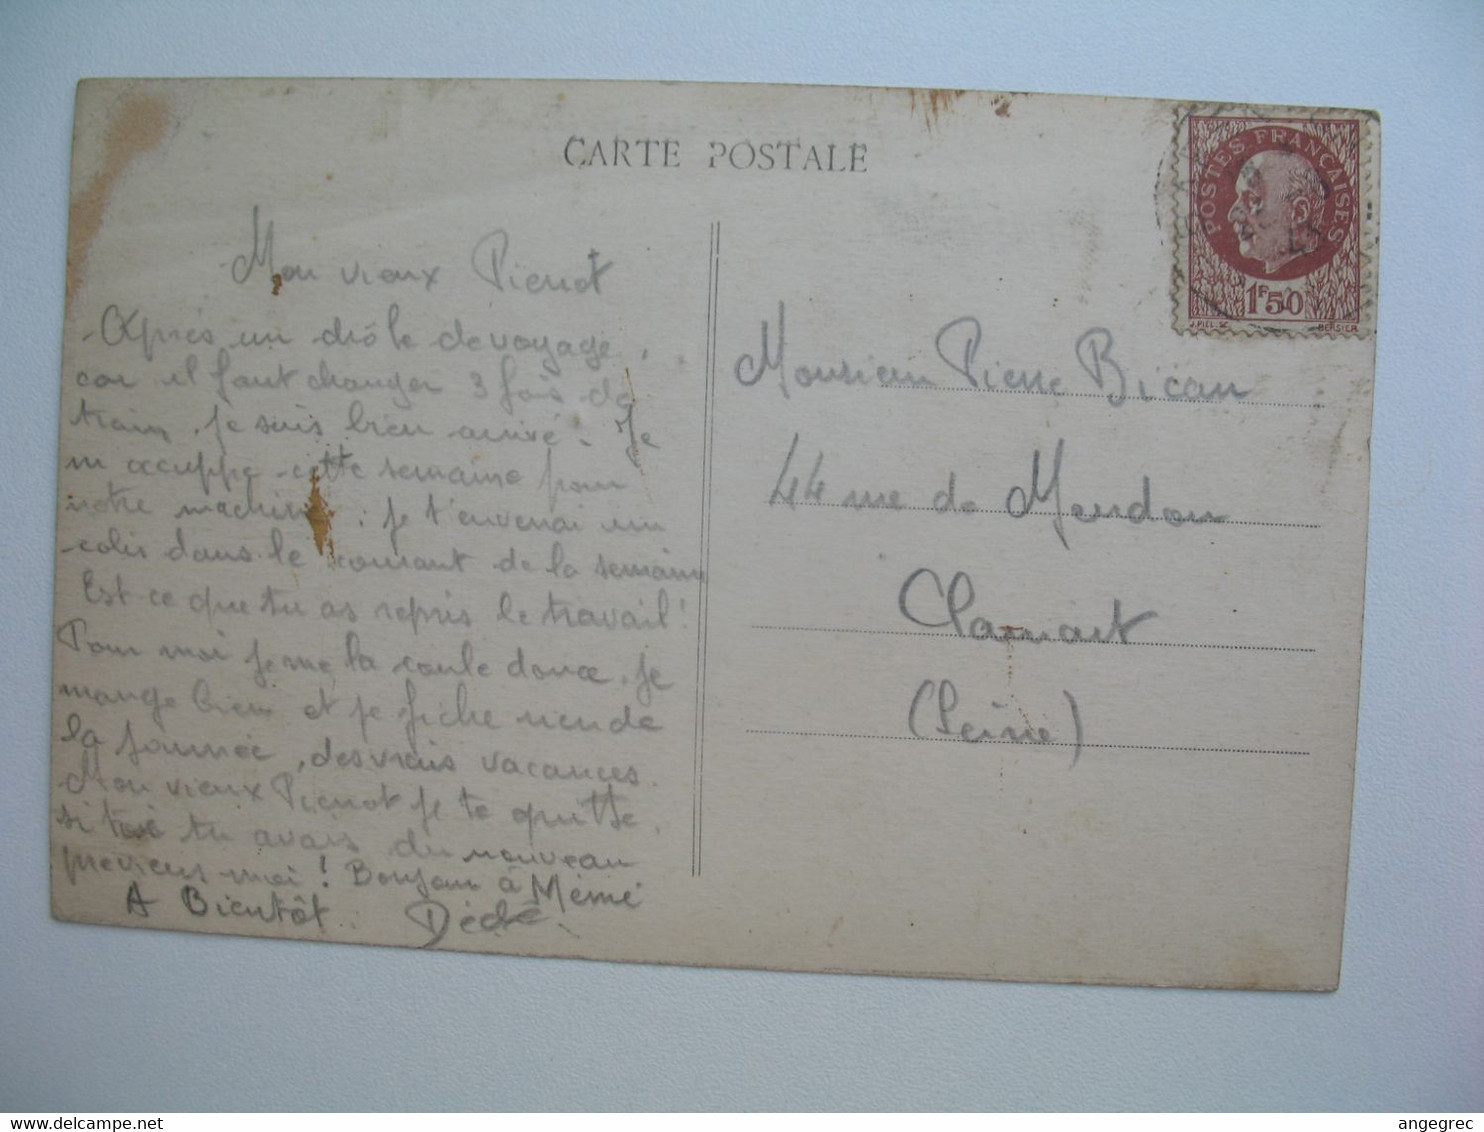 CARTE POSTALE
POSTES FRANÇAISES
1F50
J.PIEL.SC.
BERSIER
Mon vieux Pierrot
Après un drôle de voyage,
car il faut changer 3 fois de
train, je suis bien arrivé. Je
m'occuppe cette semaine pour
notre machine : je t'enverrai un
colis dans le courant de la semaine
Est-ce que tu as repris le travail!
Pour moi je me la coule douce, je
mange bien et je fiche rien de
la journée, des vrais vacances.
Mon vieux Pierrot je te quitte,
si toi tu avais du nouveau
previens moi! Bonjour à Mémé
A Bientôt. Dédé.
Monsieur Pierre Bican
44 rue de Meudon
Clamart
(Seine)
delcampe.net
angegrec